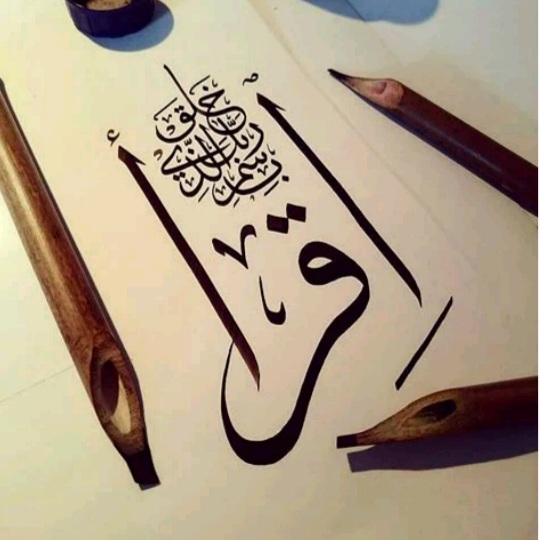 اِقْرأ
بِاسْمِ رَبِّكَ الَّذِي خَلَقَ